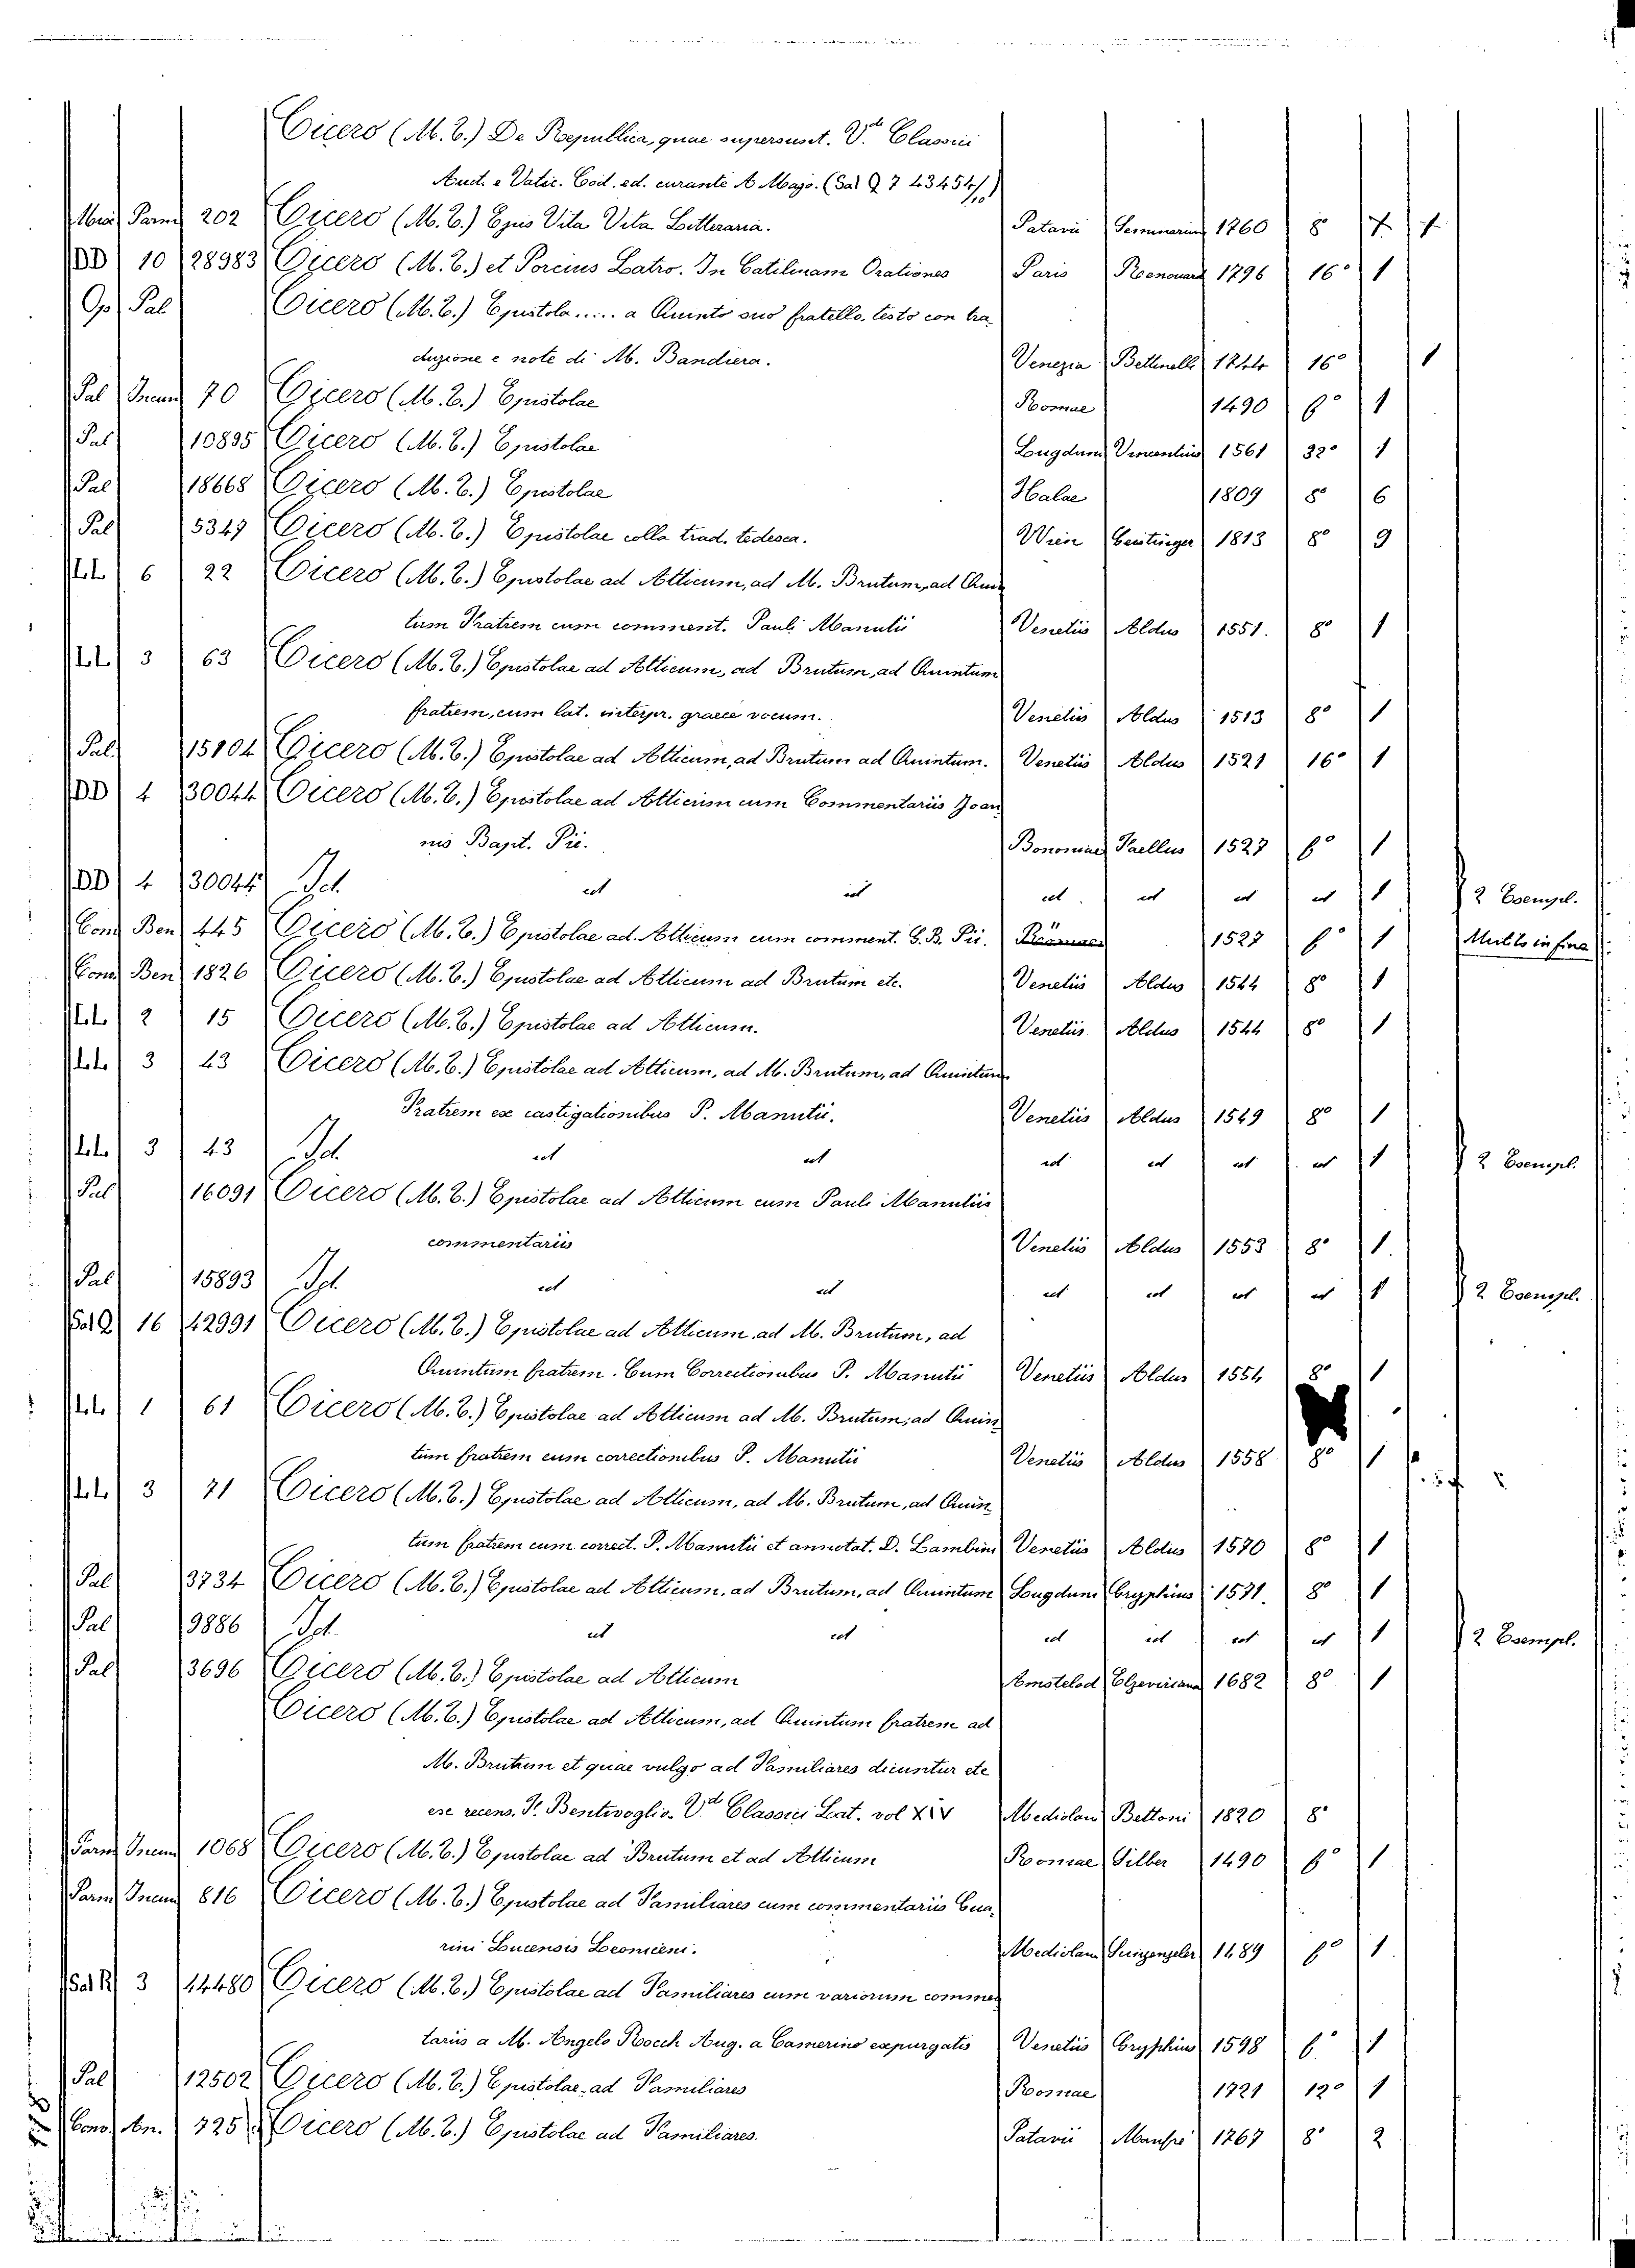 Cicero (M. C.) De Republica, quae supersunt. V.d Classici
Auct. e Vatic. Cod. ed. curante A Majo. (Sal Q 7 43454/10)
Parm 202 Cicero (M. C.) Ejus Vita Vita Letteraria. Patavii Seminarium 1760 8°
DD 10 28983 Cicero (M. C.) et Porcius Latro. In Catilinam Orationes Paris Renouard 1796 16° 1
Op Pal Cicero (M. C.) Epistola..... a Quinto suo fratello. testo con tra,
duzione e note di M. Bandiera. Venezia Bettinelli 1744 16° 1
Pal Incun 70 Cicero (M. C.) Epistolae Romae 1490 f° 1
Pal 10895 Cicero (M. C.) Epistolae Lugduni Vincentius 1561 32° 1
Pal 18668 Cicero (M. C.) Epistolae Halae 1809 8° 6
Pal 5347 Cicero (M. C.) Epistolae colla trad. tedesca. Wien 1813 8° 9
LL 6 22 Cicero (M. C.) Epistolae ad Atticum, ad M. Brutum, ad Quin
tum Fratrem cum comment. Pauli Manutii Venetiis Aldus 1551. 8° 1
LL 3 63 Cicero (M. C.) Epistolae ad Atticum, ad Brutum, ad Quintum
fratrem, cum lat. interpr. graece vocum. Venetiis Aldus 1513 8° 1
Pal. 15104 Cicero (M. C.) Epistolae ad Atticum, ad Brutum ad Quintum. Venetiis Aldus 1521 16° 1
DD 4 30044 Cicero (M. C.) Epistolae ad Atticum cum Commentariis Joan
nis Bapt. Pii. Bononiae Faellus 1527 f° 1
DD 4 30044 Id. id id id id id id 1 2 Esempl.
Conv Ben 445 Cicero (M. C.) Epistolae ad Atticum cum comment. G. B. Pii. 1527 f° 1 Mut.° in fine
Conv Ben 1826 Cicero (M. C.) Epistolae ad Atticum ad Brutum etc. Venetiis Aldus 1544 8° 1
LL 2 15 Cicero (M. C.) Epistolae ad Atticum. Venetiis Aldus 1544 8° 1
LL 3 43 Cicero (M. C.) Epistolae ad Atticum, ad M. Brutum, ad Quintum
Fratrem ex castigationibus P. Manutii. Venetiis Aldus 1549 8° 1
LL 3 43 Id. id id id id id id 1 2 Esempl.
Pal 16091 Cicero (M. C.) Epistolae ad Atticum cum Pauli Manutiis
commentariis Venetiis Aldus 1553 8° 1.
Pal 15893 Id. id id id id id id 1 2 Esempl.
Sal Q 16 42991 Cicero (M. C.) Epistolae ad Atticum ad M. Brutum, ad
Quintum fratrem. Cum Correctionibus P. Manutii Venetiis Aldus 1554 8° 1
LL 1 61 Cicero (M. C.) Epistolae ad Atticum ad M. Brutum, ad Quin
tum fratrem cum correctionibus P. Manutii Venetiis Aldus 1558 8° 1
LL 3 71 Cicero (M. C.) Epistolae ad Atticum, ad M. Brutum, ad Quin
tum fratrem cum correct. P. Manutii et annotat. D. Lambini Venetiis Aldus 1570 8° 1
Pal 3734 Cicero (M. C.) Epistolae ad Atticum, ad Brutum, ad Quintum Lugduni Gryphius 1571. 8° 1
Pal 9886 Id. id id id id id id 1 2 Esempl.
Pal 3696 Cicero (M. C.) Epistolae ad Atticum Amstelod Elzeviriana 1682 8° 1
Cicero (M. C.) Epistolae ad Atticum, ad Quintum fratrem ad
M. Brutum et quae vulgo ad Familiares dicuntur etc
ex recens. F. Bentivoglio. V.d Classici Lat. vol XIV Mediolani Bettoni 1820 8°
Parm Incun 1068 Cicero (M. C.) Epistolae ad Brutum et ad Atticum Romae Silber 1490 f° 1
Parm Incun 816 Cicero (M. C.) Epistolae ad Familiares cum commentariis Gua,
rini Lucensis Leoniceni. Mediolani 1489 f° 1.
Sal R 3 44480 Cicero (M. C.) Epistolae ad Familiares cum variorum commen
tariis a M. Angelo Rocch Aug. a Camerino expurgatis Venetiis Gryphius 1598 f. 1
Pal 12502 Cicero (M. C.) Epistolae ad Familiares Romae 1721 12° 1
Conv. An. 725 Cicero (M. C.) Epistolae ad Familiares. Patavii Manfrè 1767 8° 2